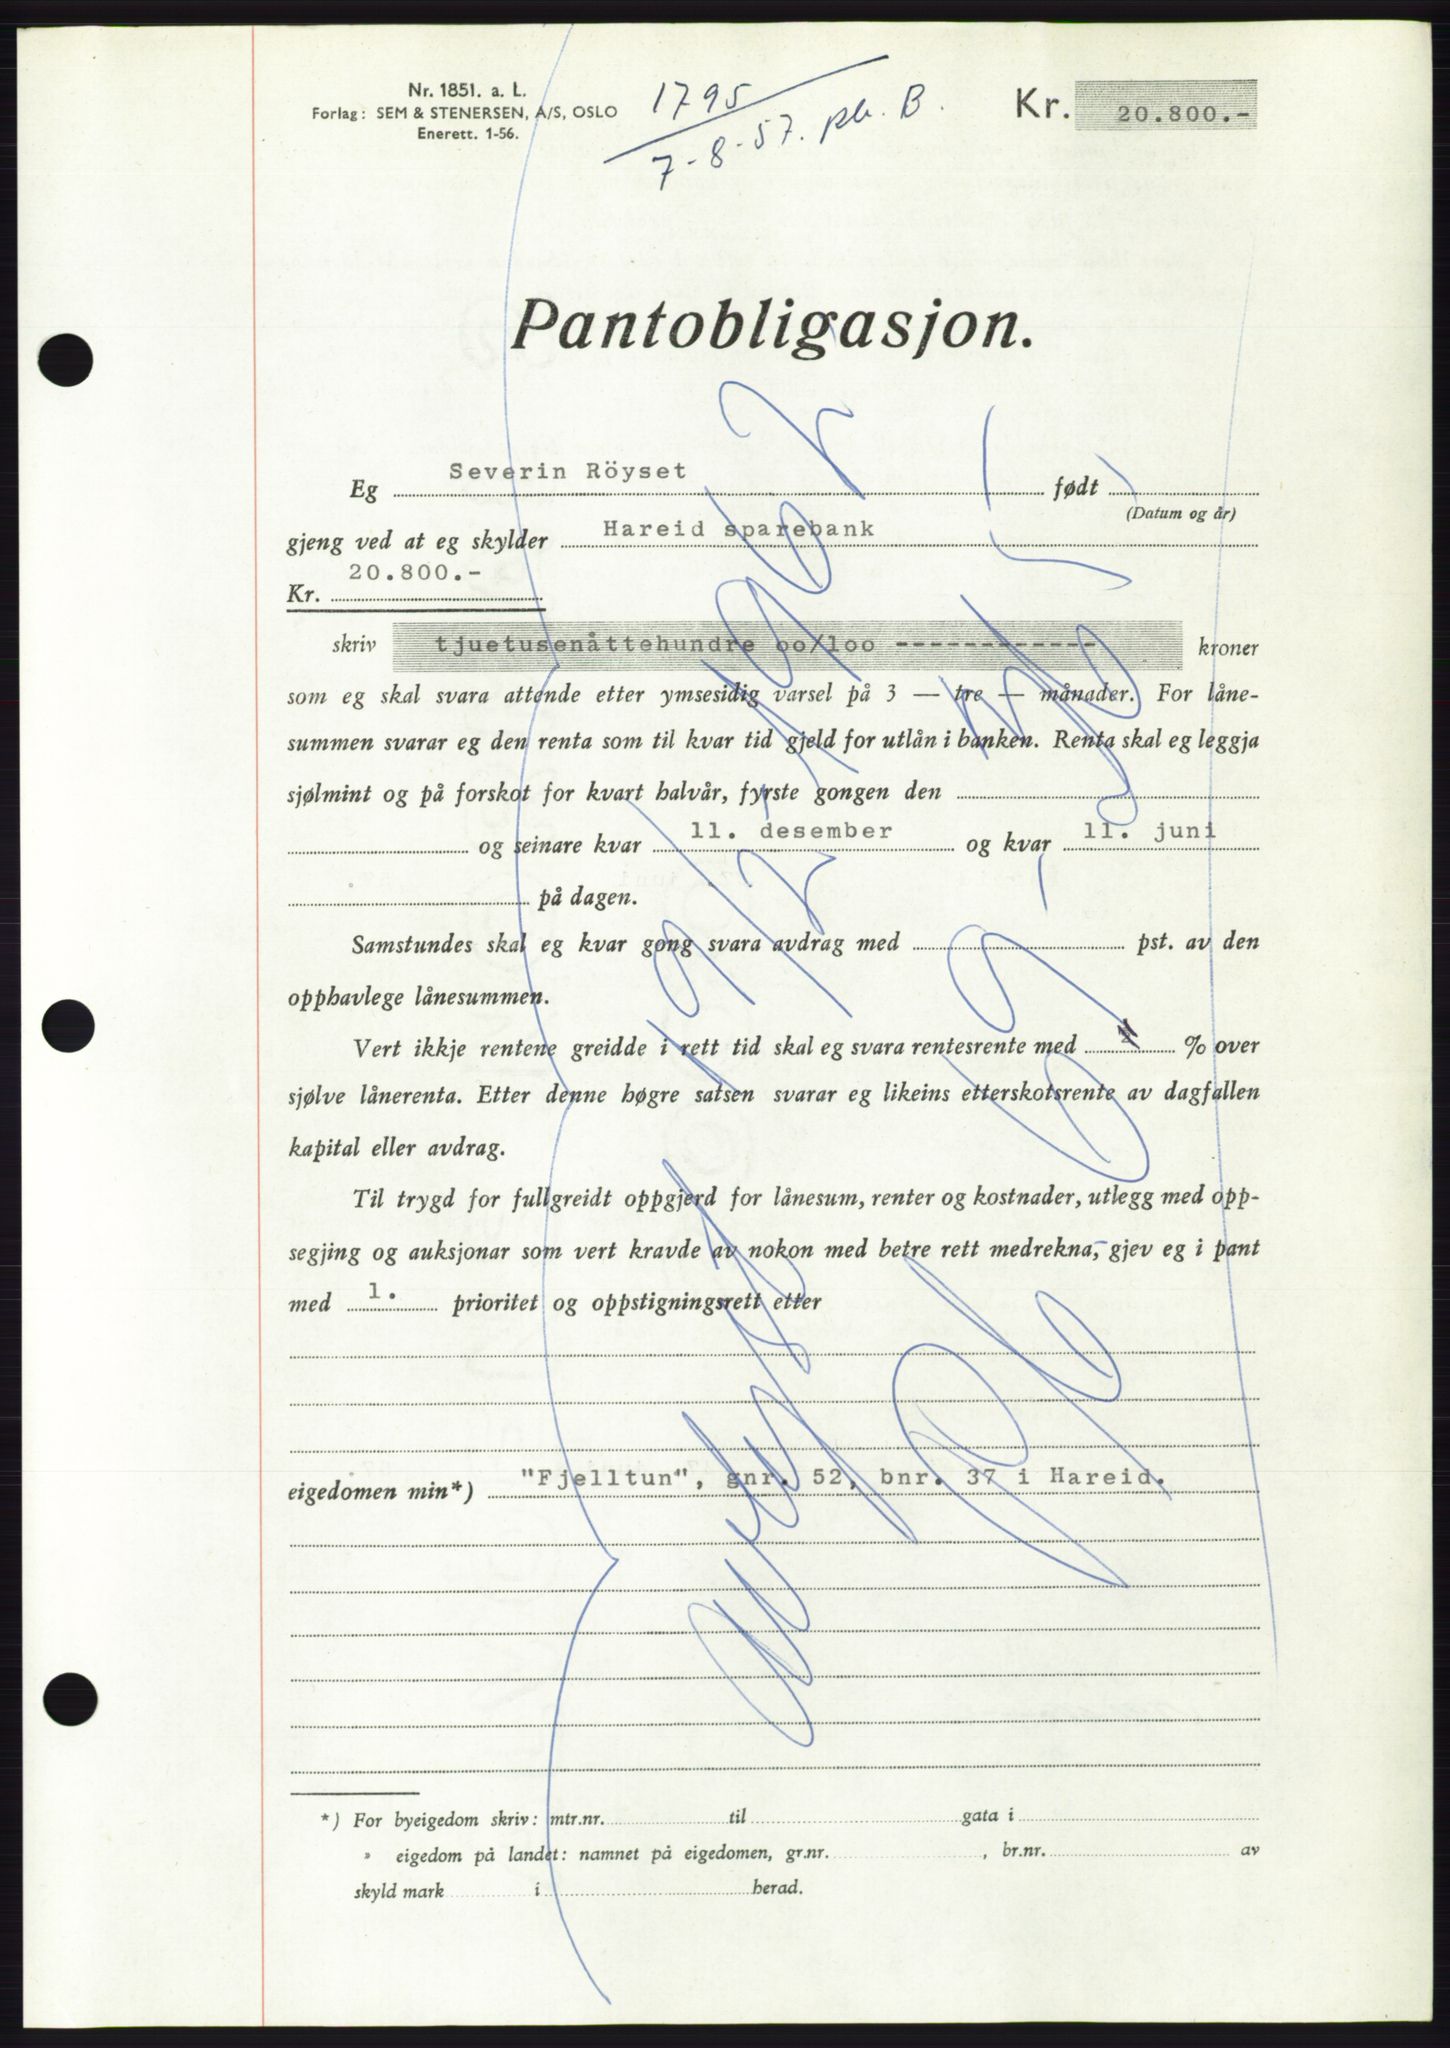 Nr. 1851. a. L.
Forlag: SEM & STENERSEN, A/S, OSLO
Enerett. 1-56.
1795
7-8-57. pb. B.
Kr. 20.800.-
Pantobligasjon.
Eg Severin Röyset født
(Datum og år)
gjeng ved at eg skylder Hareid sparebank
Kr. 20.800.-
skriv tjuetusenåttehundre oo/loo ------------ kroner
som eg skal svara attende etter ymsesidig varsel på 3 — tre — månader. For låne-
summen svarar eg den renta som til kvar tid gjeld for utlån i banken. Renta skal eg leggja
sjølmint og på forskot for kvart halvår, fyrste gongen den
og seinare kvar 11. desember og kvar 11. juni
på dagen.
Samstundes skal eg kvar gong svara avdrag med pst. av den
opphavlege lånesummen.
Vert ikkje rentene greidde i rett tid skal eg svara rentesrente med % over
sjølve lånerenta. Etter denne høgre satsen svarar eg likeins etterskotsrente av dagfallen
kapital eller avdrag.
Til trygd for fullgreidt oppgjerd for lånesum, renter og kostnader, utlegg med opp-
segjing og auksjonar som vert kravde av nokon med betre rett medrekna, gjev eg i pant
med 1. prioritet og oppstigningsrett etter
eigedomen min*) "Fjelltun", gnr. 52, bnr. 37 i Hareid.
*) For byeigedom skriv: mtr.nr. til gata i
" eigedom på landet: namnet på eigedomen, gr.nr. , br.nr. av
skyld mark i herad.
avlyst 19/2 1962